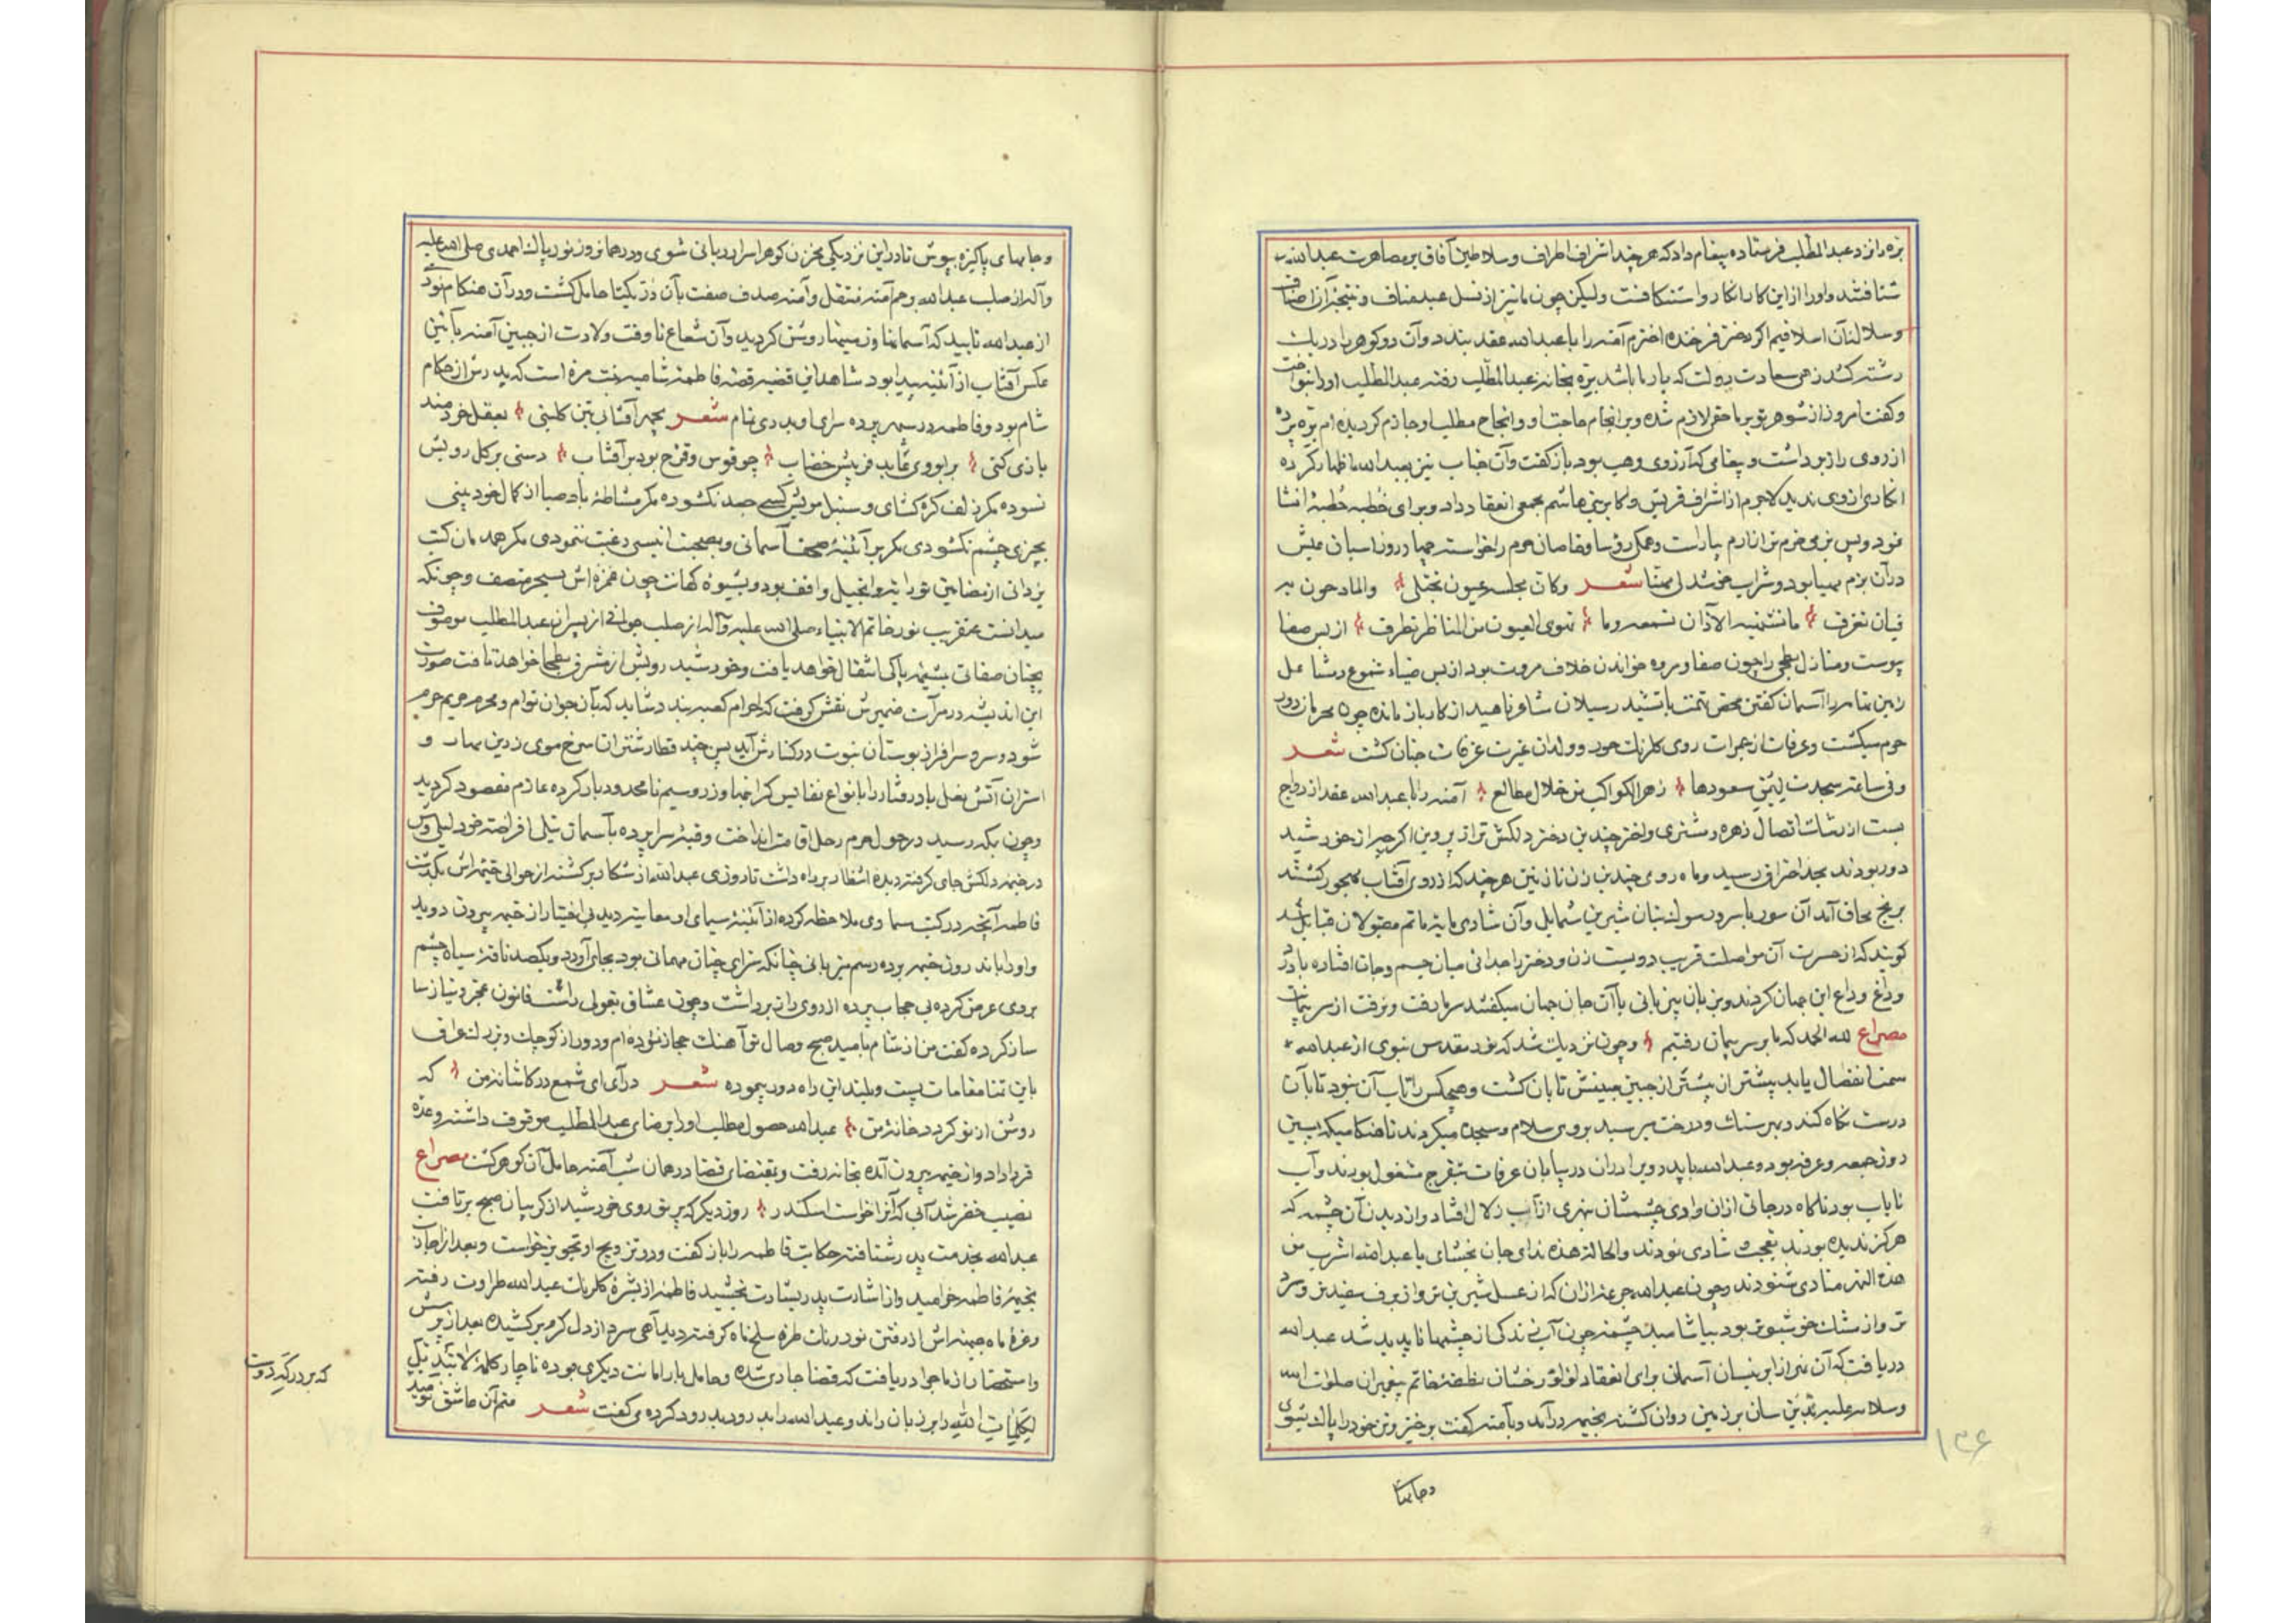 بره را نزد عبدالمطلب فرستاده پیغام داد که هر چند اشراف اطراف و سلاطین آفاق بمصاهرت عبدالله
شتافتند و او را از این کار انکار و استنکافست ولیکن چون ما نیز از نسل عبدمناف و نتیجه آن اصناف
و سلاله آن اسلافیم اگر دختر فرخنده اخترم آمنه را با عبدالله عقد بندد و آن دو کوهر را در یک
رشته کشد زهی سعادت و دولت که یار ما باشد بره بخانه عبدالمطلب رفته عبدالمطلب او را بنواخت
و کفت امروز از شوهر تو بر ما حقی لازم شده و بر انجام حاجت او و انجاح مطلب او جازم کردیده ام بره پرده
از روی راز برداشت و پیغامی که آرزوی وهب بود باز کفت و آن جناب نیز بعبدالله اظهار کرده
انکاری از وی ندید لاجرم از اشراف قریش و اکابر بنی هاشم مجمعی انعقاد داد و برای خطبه خُطبهٔ انشا
نمود و پس بزمی خرم تر از ارم بیاراست و همکی رؤسا و خاصان حرم را بخواست
در آن بزم مهیا بود و شراب شعر وکان مجلسه عیون تجتلی
فیان تغرف ما تشتهیه الآذان تسمعه وما تهوی العیون من المناظر تطرف از بس صفا
پیوست و منازل بطحی را چون صفا و مروه خواندن خلاف مروت بود از بس ضیاء شموع و مشاعل
زمین را آسمان کفتن محض تهمت
حرم میکشت و عرفات از جمرات روی کلرنک حور و ولدان غیرت غرفات جنان کشت شعر
وفی ساعة سجدت لیمن سعودها زهر الکواکب من خلال مطالع آمنه را با عبدالله عقد ازدواج
بست از نشاط اتصال زهره و مشتری و اختر چندین دختر دلکش تر از پروین اکر چه از خورشید
دور بودند بحد احتراق رسید و ماه روی چندین زن نازنین هر چند که از روی آفتاب مهجور کشتند
برنج محاق آمد آن سور با سرور سوک بتان شیرین شمایل و آن شادی مایه ماتم مقبولان قبایل شد
کویند که از حسرت آن مواصلت قریب دویست زن و دختر را جدائی میان جسم و جان افتاده با درد
و داغ وداع این جهان کردند و بزبان بیزبانی با آن جان جهان میکفتند سر ما رفت و نرفت از سر پیمان
مصراع لله الحمد که ما بر سر پیمان رفتیم و چون نزدیک شد که نور مقدس نبوی از عبدالله
سمت انفصال یابد بیشتر از پیشتر از جبین مبینش تابان کشت و هیچکس را تاب آن نبود تا بآن
درست نکاه کند و بهر سنک و درخت میرسید بر وی سلام و سجده میکردند تا هنکامیکه پسین
روز جمعه و عرفه بود و عبدالله با پدر و برادران در بیابان عرفات بتفرج مشغول بودند و آب
نایاب بود ناکاه در جائی از آن وادی چشمشان بنهری از آب زلال افتاد و از دیدن آن چشمه که
هرکز ندیده بودند بتعجب و شادی نمودند والحالة هذه ندای جان بخشای یا عبدالله اشرب من
هذه النهر منادی شنودند و چون عبدالله جرعهٔ از آن که از عسل شیرین تر و از برف سفیدتر و سرد
تر و از مشک خوشبوتر بود بیاشامید چشمه چون آب زندکی از چشمها ناپدید شد عبدالله
دریافت که آن نمی از ابر نیسان آسمانی برای انعقاد لؤلؤ رخشان نطفه خاتم پیغمبران صلوات الله
وسلامه علیه بر زمین روان کشته بخیمه درآمد و بآمنه کفت برخیز و تن خود را پاک بشوی
و جامهای
۱۳۶
و جامهای پاکیزه بپوش تا در این نزدیکی مخزن کوهر اسرار ربانی شوی و در همان روز نور پاک احمدی صلی الله علیه
وآله از صلب عبدالله برحم آمنه منتقل و آمنه صدف صفت بآن دُرّ یکتا حامل کشت و در آن هنکام نور
از عبدالله تابید که آسمانها و زمینها روشن کردید و آن شعاع تا وقت ولادت از جبین آمنه بآئین
عکس آفتاب از آئینه پیدا بود شاهد این قضیه قصه فاطمه شامیه بنت مره است که پدرش از حکام
شام بود و فاطمه در پس پرده سرای او بدری تمام شعر بچهر آفتابی بتن کلبنی بعقل خردمند
بازی کنی بر ابروی عابد فریبش خضاب چو قوس و قزح بود بر آفتاب دستی بر کل رویش
نسوده مکر زلف کره کشای و سنبل مویش کسی جعد نکشوده مکر مشاطهٔ باد صبا از کمال خود بینی
بچیزی چشم نکشودی مکر بر آئینهٔ صحف آسمانی و بصحبت انیسی رغبت ننمودی مکر همدمان کتب
یزدانی از مضامین توراة و انجیل واقف بود و بشیوهٔ کهانت چون غمزه اش بسحر متصف و چونکه
میدانست عنقریب نور خاتم الانبیاء صلی الله علیه وآله از صلب جوانی از پسران عبدالمطلب موصوف
بچنان صفاتی بمشیمه پاکی انتقال خواهد یافت و خورشید رویش از مشرق بطحا خواهد تافت صورت
این اندیشه در مرآت ضمیرش نقش کرفت که احرام کعبه بندد شاید که بآن جوان توام و محرم حریم حرم
شود و سرو سرافراز بوستان نبوت در کنارش آید پس چند قطار شتران سرخ موی زرین مهار و
استران آتش نعل باد رفتار را بانواع نفایس کرانبها و زر و سیم نامحدود بار کرده عازم مقصود کردید
و چون بمکه رسید در حول حرم رحل اقامت انداخت و قبهٔ سراپرده بآسمان نیلی افراخته خود لیلی وش
در خیمه دلکش جای کرفته دیده انتظار براه داشت تا روزی عبدالله از شکار برکشته از حوالی خیمه اش بکذشت
فاطمه آنچه در کتب سماوی ملاحظه کرده از آئینهٔ سیمای او معاینه دید بی اختیار از خیمه بیرون دوید
و او را باندرون خیمه برده رسم میزبانی چنانکه سزای چنان مهمانی بود بجای آورد و یکصد ناقهٔ سیاه چشم
بر وی عرض کرده بی حجاب پرده از روی راز برداشت و چون عشاق بقولی راست قانون عجز و نیاز ساز
ساز کرده کفت من از شام بامید صبح وصال تو آهنک حجاز نموده ام و دور از کوچک و بزرک عراق
باین تمنا مقامات پست و بلند این راه دور پیموده شعر درآی ای شمع در کاشانه من که
روشن از تو کردد خانه من عبدالله حصول مطلب او را برضای عبدالمطلب موقوف داشته وعده
قرار داد و از خیمه بیرون آمده بخانه رفت و بمقتضای قضا در همان شب آمنه حامل آن کوهر کشت مصراع
نصیب خضر شد آبی که آنرا خواست اسکندر روز دیکر که پرتو روی خورشید از کریبان صبح برتافت
عبدالله بخدمت پدر شتافته حکایت فاطمه را باز کفت و در تزویج او تجویز خواست و بعد از اجازت
بخیمهٔ فاطمه خرامید و از اشارت پدر بشارت بخشید فاطمه از بشرهٔ کلرنک عبدالله طراوت رفته
و غرهٔ ماه جبینه اش از رفتن نور رنک طره سلخ ماه کرفته دید آهی سرد از دل کرم برکشیده بعد از پرسش
و استحضار از ماجرا دریافت که قضا جاری شده و حامل بار امانت دیکری بوده ناچار کلمهٔ لا تبدیل
لکلمات الله را بر زبان راند و عبدالله را بدرود کرده می کفت شعر منم آن عاشق نومید
که بر درکه دوست